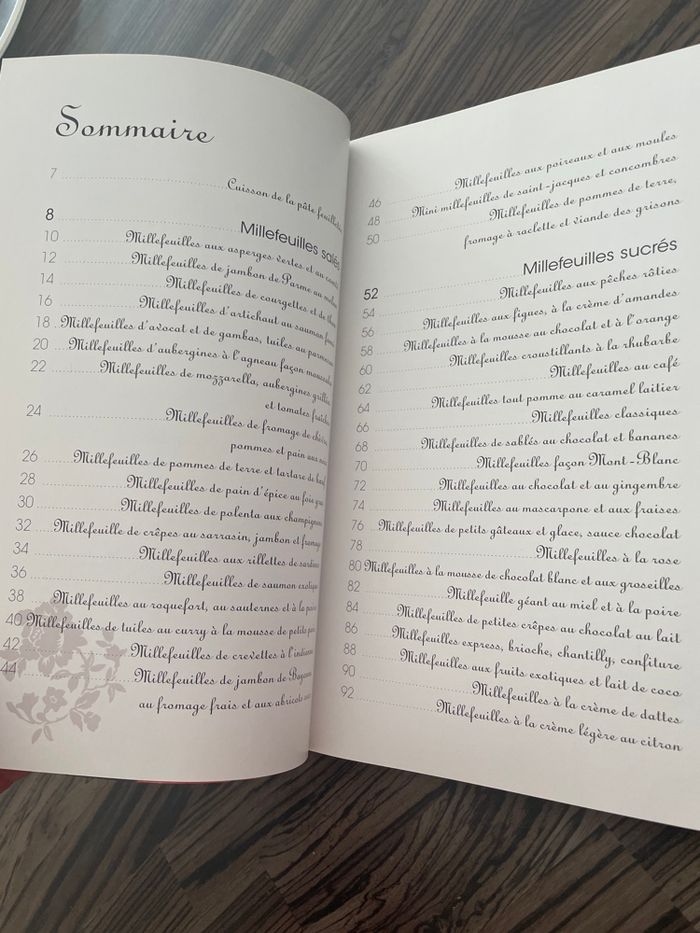 Sommaire
7 Cuisson de la pâte feuilletée
8 Millefeuilles salés
10 Millefeuilles aux asperges vertes et au
12 Millefeuilles de jambon de Parme au melon
14 Millefeuilles de courgettes et de
16 Millefeuilles d'artichaut au saumon fumé
18 Millefeuilles d'avocat et de gambas, tuiles au parmesan
20 Millefeuilles d'aubergines à l'agneau façon moussaka
22 Millefeuilles de mozzarella, aubergines grillées
et tomates fraîches
24 Millefeuilles de fromage de chèvre,
pommes et pain aux noix
26 Millefeuilles de pommes de terre et tartare de
28 Millefeuilles de pain d'épice au foie gras
30 Millefeuilles de polenta aux champignons
32 Millefeuille de crêpes au sarrasin, jambon et fromage
34 Millefeuilles aux rillettes de sardines
36 Millefeuilles de saumon exotique
38 Millefeuilles au roquefort, au sauternes et à la poire
40 Millefeuilles de tuiles au curry à la mousse de petits pois
42 Millefeuilles de crevettes à l'indienne
44 Millefeuilles de jambon de Bayonne
au fromage frais et aux abricots secs
46 Millefeuilles aux poireaux et aux moules
48 Mini millefeuilles de saint-jacques et concombres
50 Millefeuilles de pommes de terre,
fromage à raclette et viande des grisons
52 Millefeuilles sucrés
54 Millefeuilles aux pêches rôties
56 Millefeuilles aux figues, à la crème d'amandes
58 Millefeuilles à la mousse au chocolat et à l'orange
60 Millefeuilles croustillants à la rhubarbe
62 Millefeuilles au café
64 Millefeuilles tout pomme au caramel laitier
66 Millefeuilles classiques
68 Millefeuilles de sablés au chocolat et bananes
70 Millefeuilles façon Mont-Blanc
72 Millefeuilles au chocolat et au gingembre
74 Millefeuilles au mascarpone et aux fraises
76 Millefeuilles de petits gâteaux et glace, sauce chocolat
78 Millefeuilles à la rose
80 Millefeuilles à la mousse de chocolat blanc et aux groseilles
82 Millefeuille géant au miel et à la poire
84 Millefeuilles de petites crêpes au chocolat au lait
86 Millefeuilles express, brioche, chantilly, confiture
88 Millefeuilles aux fruits exotiques et lait de coco
90 Millefeuilles à la crème de dattes
92 Millefeuilles à la crème légère au citron